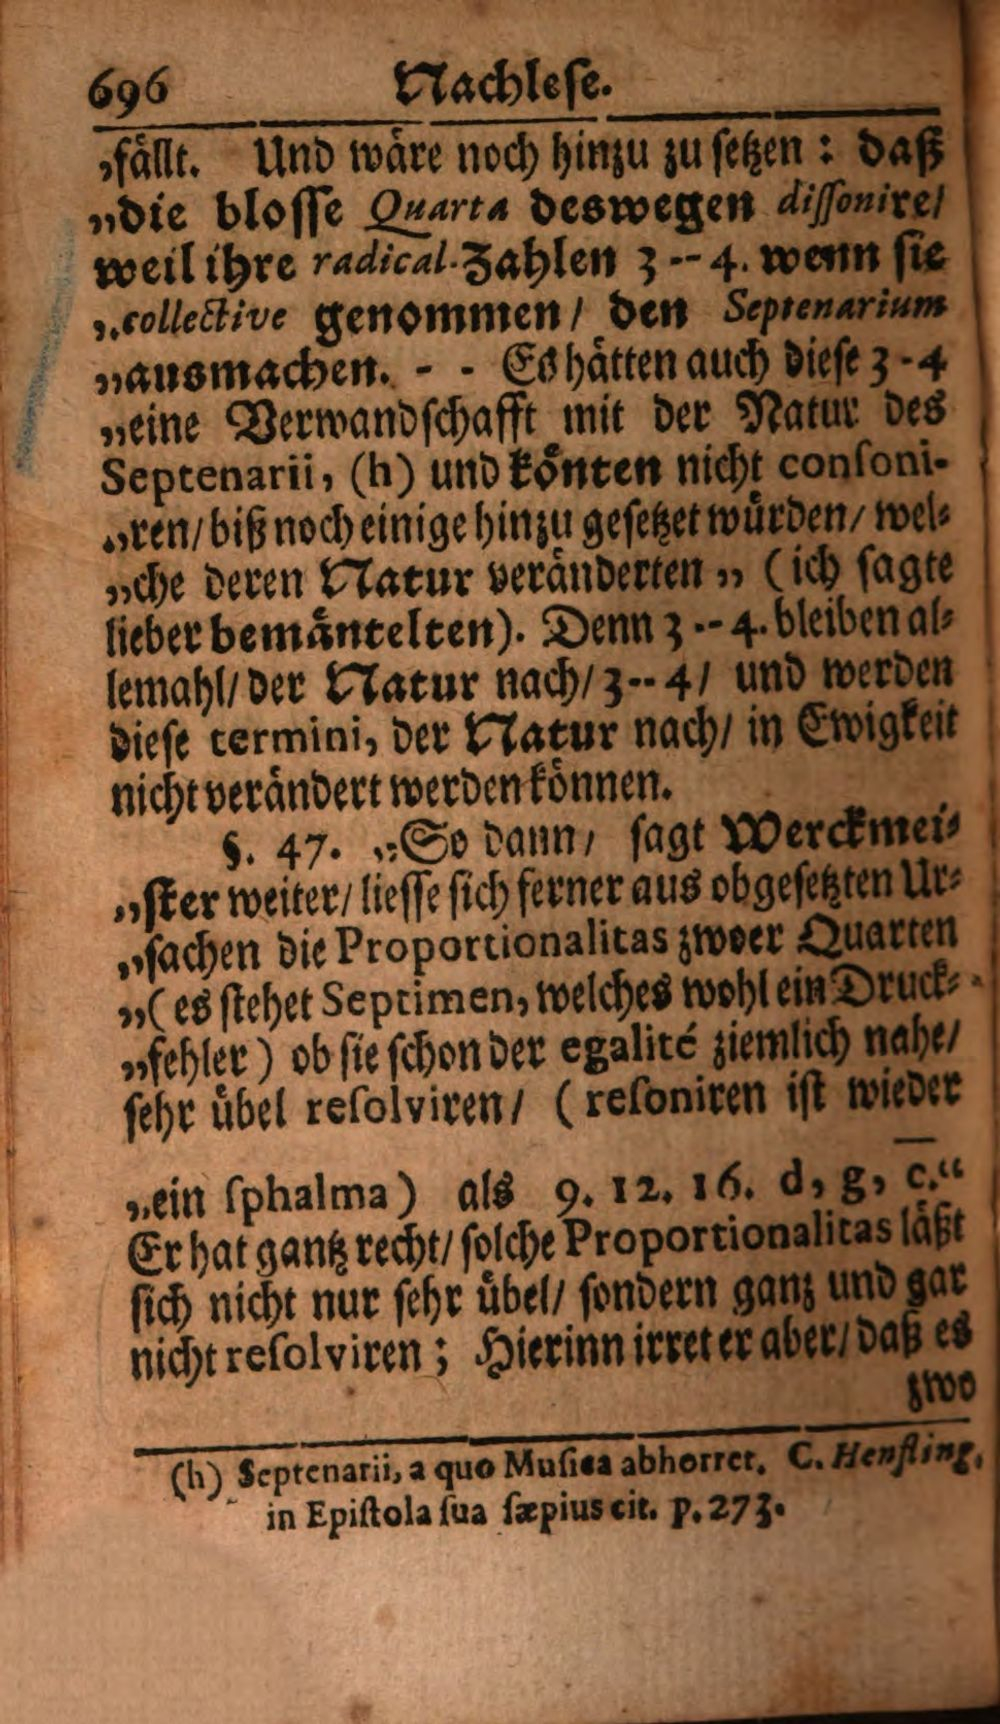 696 Nachlese.
„fällt. Und wäre noch hinzu zu setzen: daß
„die blosse Quarta deswegen dissonire/
weil ihre radical-Zahlen 3--4. wenn sie
„collective genommen/ den Septenarium
„ausmachen. - - Es hätten auch diese 3-4
„eine Verwandschafft mit der Natur des
Septenarii, (h) und könten nicht consoni-
„ren/ biß noch einige hinzu gesetzet würden/ wel-
„che deren Natur veränderten „ (ich sagte
lieber bemäntelten). Denn 3--4. bleiben al-
lemahl/ der Natur nach/ 3--4/ und werden
diese termini, der Natur nach/ in Ewigkeit
nicht verändert werden können.
§. 47. „So dann/ sagt Werckmei-
„ster weiter/ liesse sich ferner aus obgesetzten Ur-
„sachen die Proportionalitas zwoer Quarten
„(es stehet Septimen, welches wohl ein Druck-
„fehler) ob sie schon der egalité ziemlich nahe/
sehr übel resolviren/ (resoniren ist wieder
„ein sphalma) als 9. 12. 16. d, g, c̅.“
Er hat gantz recht/ solche Proportionalitas läßt
sich nicht nur sehr übel/ sondern ganz und gar
nicht resolviren; Hierinn irret er aber/ daß es
zwo
(h) Septenarii, a quo Musica abhorret. C. Henfling,
in Epistola sua sæpius cit. p. 273.